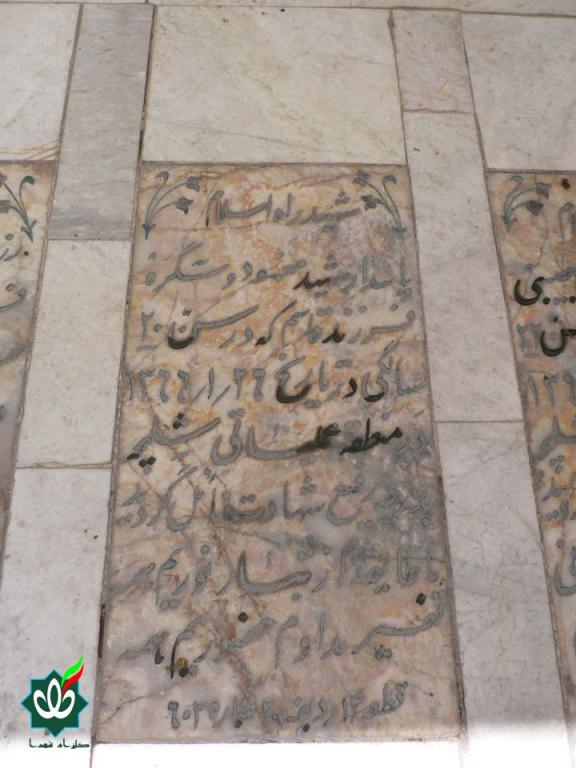 شهید راه اسلام
پاسدار شهید مسعود دستگره
فرزند قاسم که در سن ۲۰
سالگی در تاریخ ۱۳۶۶/۱/۲۶
در منطقه عملیاتی شلمچه
بدرجه رفیع شهادت نائل گردید
ما طایفه از تبار نوریم همه
تفسیر مداوم حضوریم همه
قطعه ۱۴ ردیف ۲۰ شماره ۶۰۳۵
گلزار شهدا